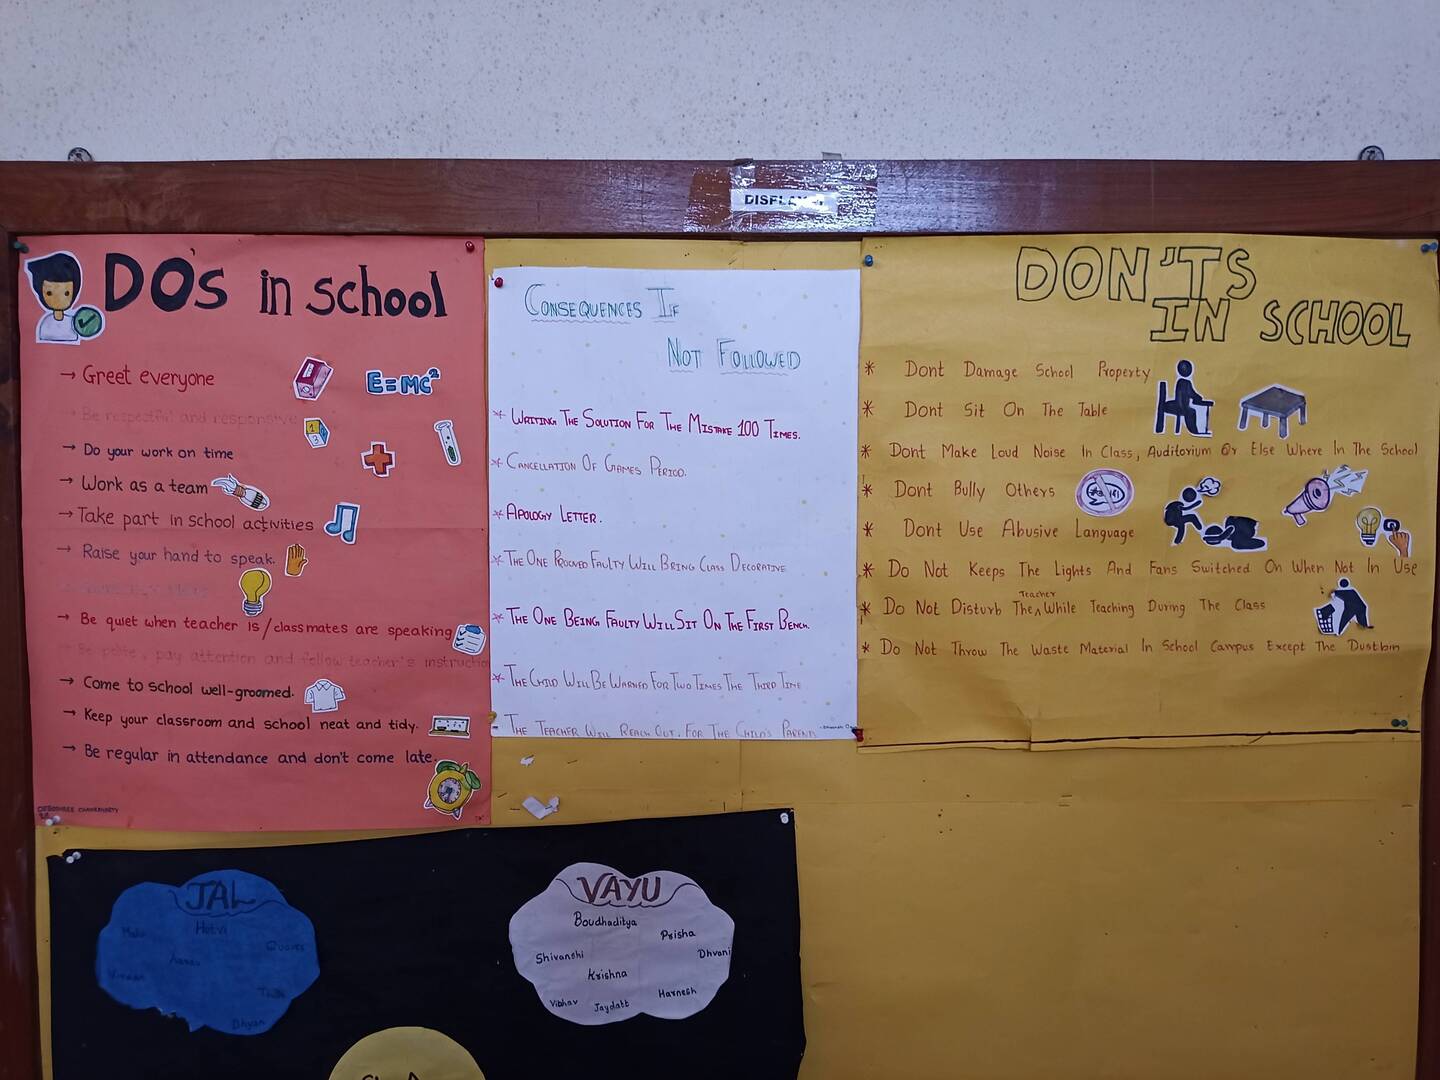 DISPLAY
DO'S in school
→ Greet everyone
E=MC²
Be respectful and responsive
1
3
→ Do your work on time
→ Work as a team
→ Take part in school activities
→ Raise your hand to speak.
→ Be quiet when teacher is/classmates are speaking
Be polite, pay attention and follow teacher's instruction
→ Come to school well-groomed.
→ Keep your classroom and school neat and tidy.
→ Be regular in attendance and don't come late.
DEBOSHREE CHAKRABORTY
CONSEQUENCES IF
NOT FOLLOWED
* WRITING THE SOLUTION FOR THE MISTAKE 100 TIMES.
* CANCELLATION OF GAMES PERIOD.
* APOLOGY LETTER.
* THE ONE PROOVED FAULTY WILL BRING CLASS DECORATIVE
* THE ONE BEING FAULTY WILL SIT ON THE FIRST BENCH.
* THE CHILD WILL BE WARNED FOR TWO TIMES THE THIRD TIME
THE TEACHER WILL REACH OUT. FOR THE CHILD'S PARENT
DON'TS
IN SCHOOL
* Dont Damage School Property
* Dont Sit On The Table
* Dont Make Loud Noise In Class, Auditorium Or Else Where In The School
* Dont Bully Others
* Dont Use Abusive Language
* Do Not Keeps The Lights And Fans Switched On When Not In Use
* Do Not Disturb The Teacher While Teaching During The Class
* Do Not Throw The Waste Material In School Campus Except The Dustbin
JAL
Hetvi
Dhyan
VAYU
Boudhaditya
Prisha
Shivanshi
Dhvani
Krishna
Vibhav
Jaydatt
Harnesh